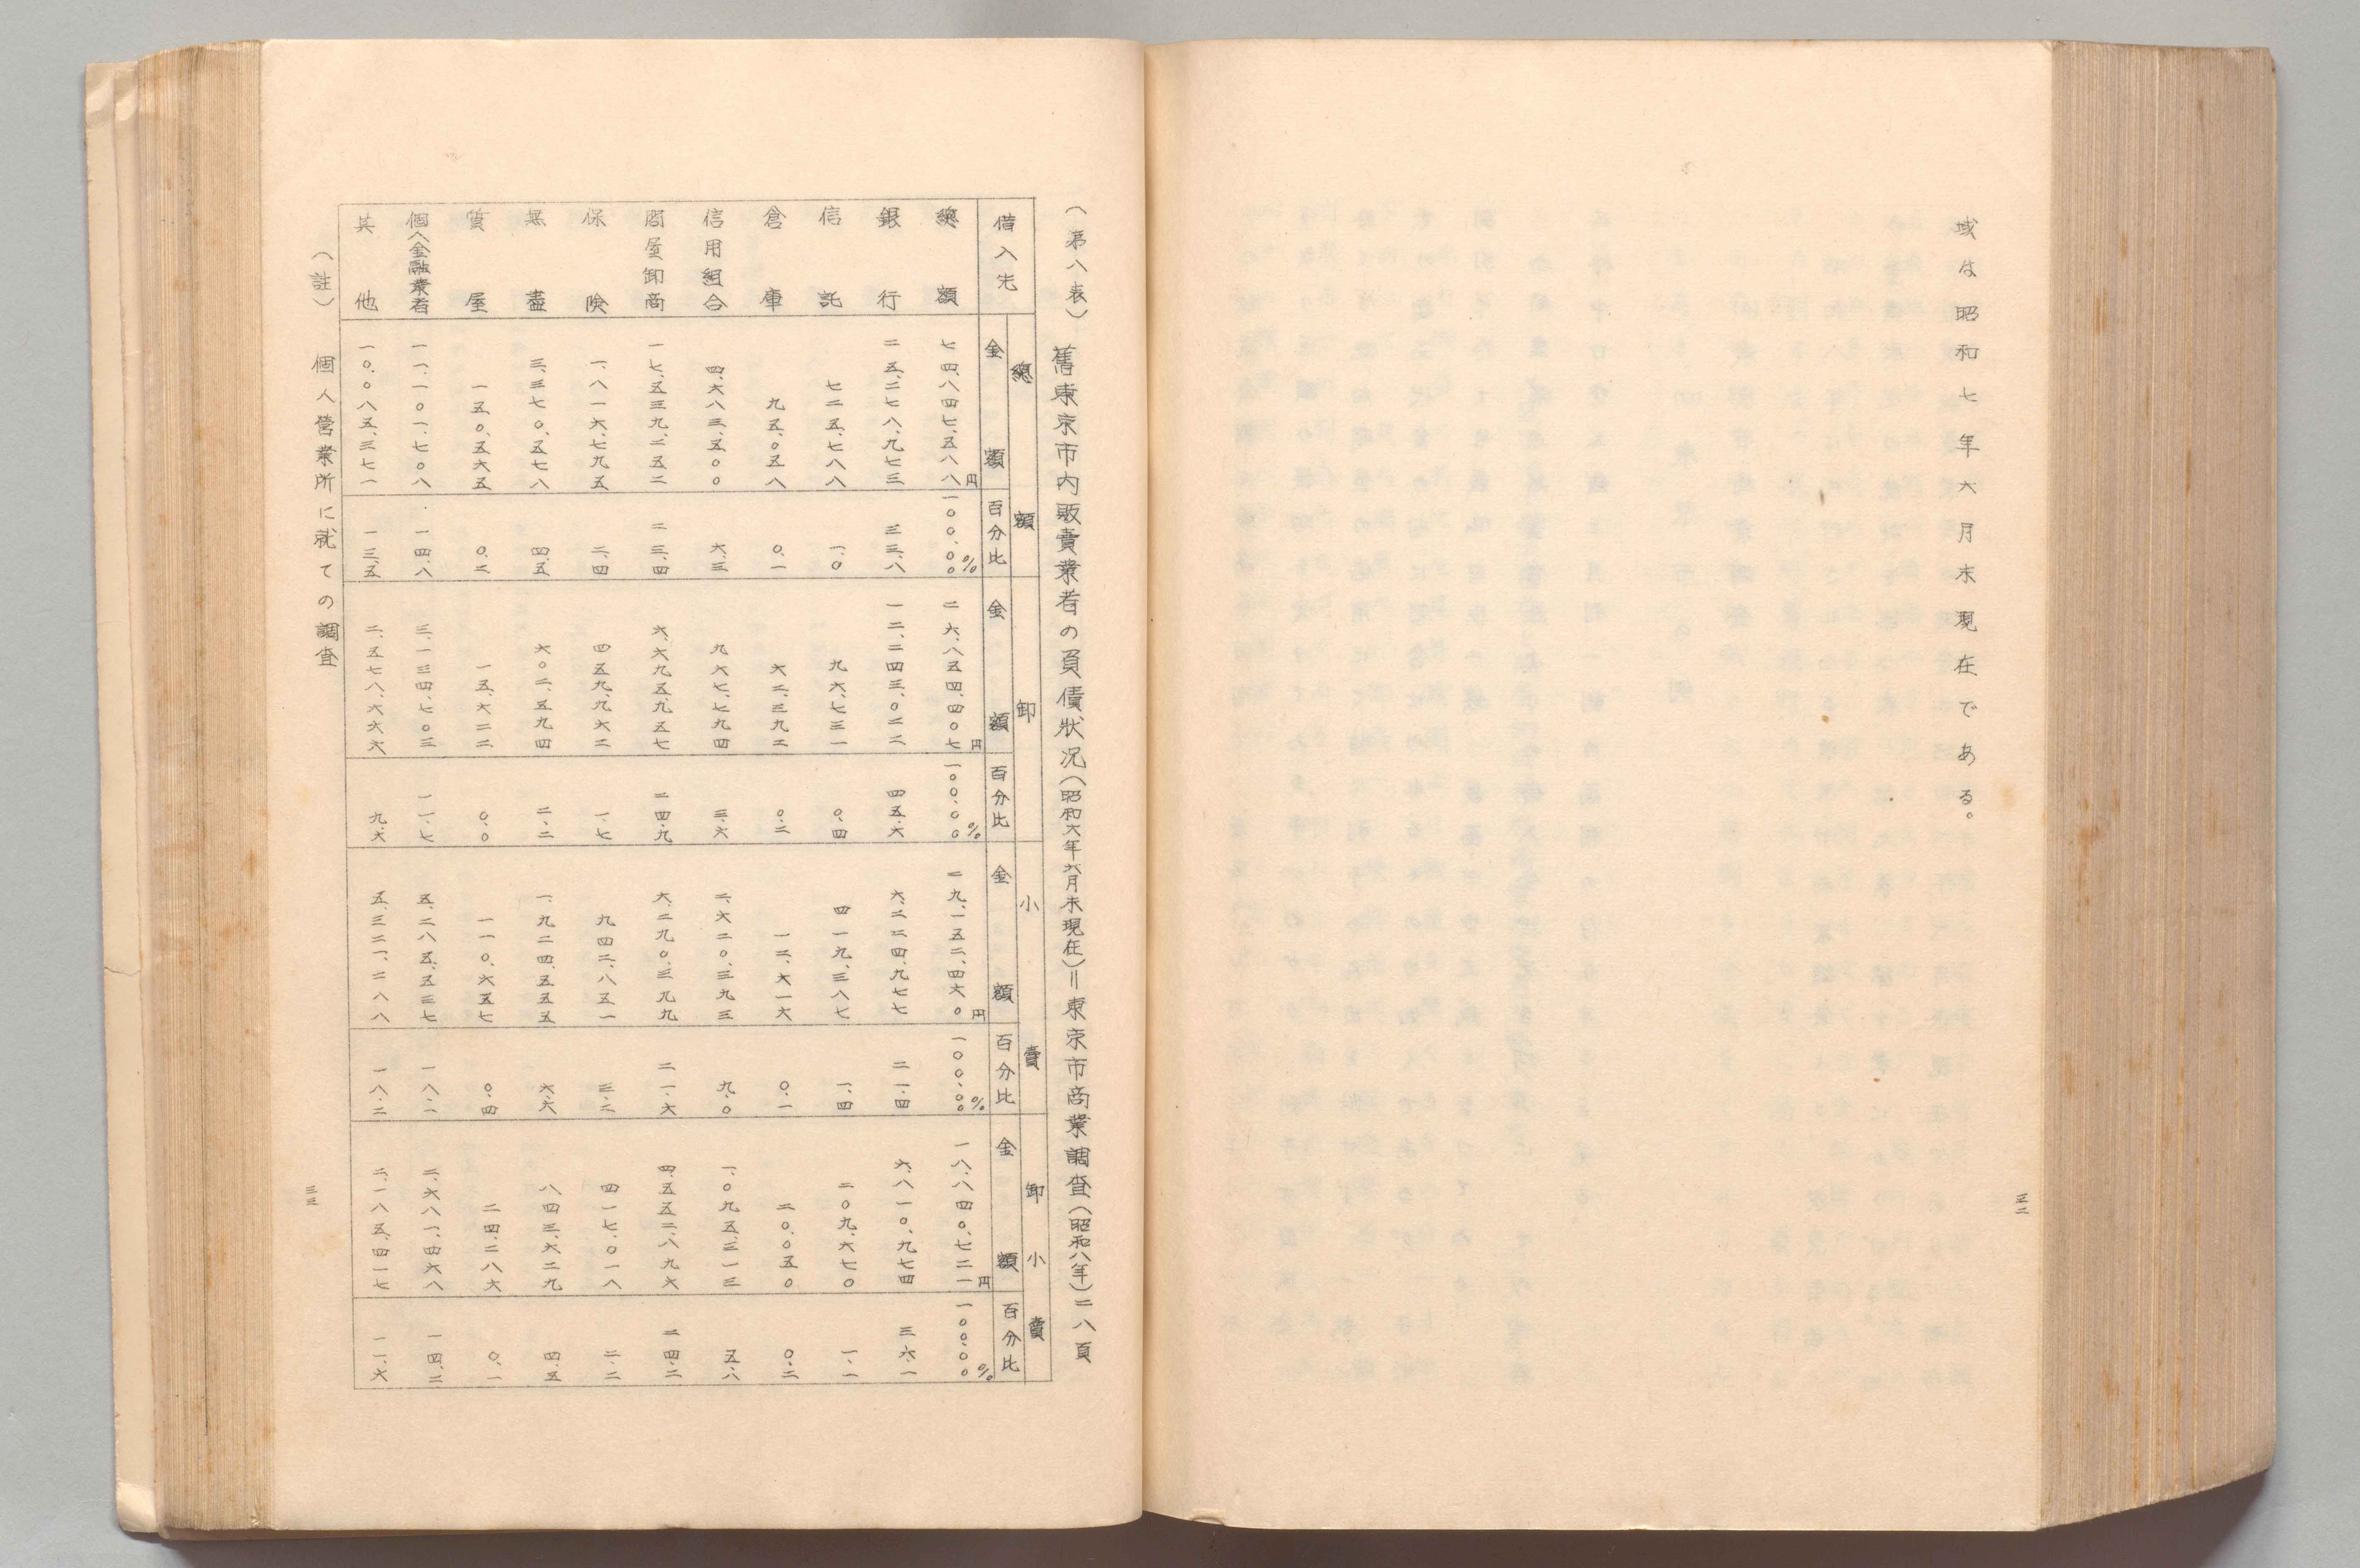 域は昭和七年六月末現在である。
三二
(第八表) 舊東京市内販賣業者の負債狀況(昭和六年六月末現在)=東京市商業調査(昭和八年)二八頁
借入先 總額 卸 小賣 卸小賣
金額 百分比 金額 百分比 金額 百分比 金額 百分比
總額 七四、八四七、五八八円 一〇〇.〇〇% 二六、八五四、四〇七円 一〇〇.〇〇% 二九、一五二、四六〇円 一〇〇.〇〇% 一八、八四〇、七二一円 一〇〇.〇〇%
銀行 二五、二七八、九七三 三三.八 一二、二四三、〇二二 四五.六 六、二二四、九七七 二一.四 六、八一〇、九七四 三六.一
信託 七二五、七八八 一.〇 九六、七三一 〇.四 四一九、三八七 一.四 二〇九、六七〇 一.一
倉庫 九五、〇五八 〇.一 六二、三九二 〇.二 一二、六一六 〇.一 二〇、〇五〇 〇.二
信用組合 四、六八三、五〇〇 六.三 九六七、七九四 三.六 二、六二〇、三九三 九.〇 一、〇九五、三一三 五.八
問屋卸商 一七、五三九、二五二 二三.四 六、六九五、九五七 二四.九 六、二九〇、三九九 二一.六 四、五五二、八九六 二四.二
保険 一、八一六、七九五 二.四 四五九、九六二 一.七 九四二、八五一 三.二 四一七、〇一八 二.二
無盡 三、三七〇、五七八 四.五 六〇二、五九四 二.二 一、九二四、五五五 六.六 八四三、六二九 四.五
質屋 一五〇、五六五 〇.二 一五、六二二 〇.〇 一一〇、六五七 〇.四 二四、二八六 〇.一
個人金融業者 一一、一〇一、七〇八 一四.八 三、一三四、七〇三 一一.七 五、二八五、五三七 一八.一 二、六八一、四六八 一四.二
其他 一〇、〇八五、三七一 一三.五 二、五七八、六六六 九.六 五、三二一、二八八 一八.二 二、一八五、四一七 一一.六
(註) 個人營業所に就ての調査
三三